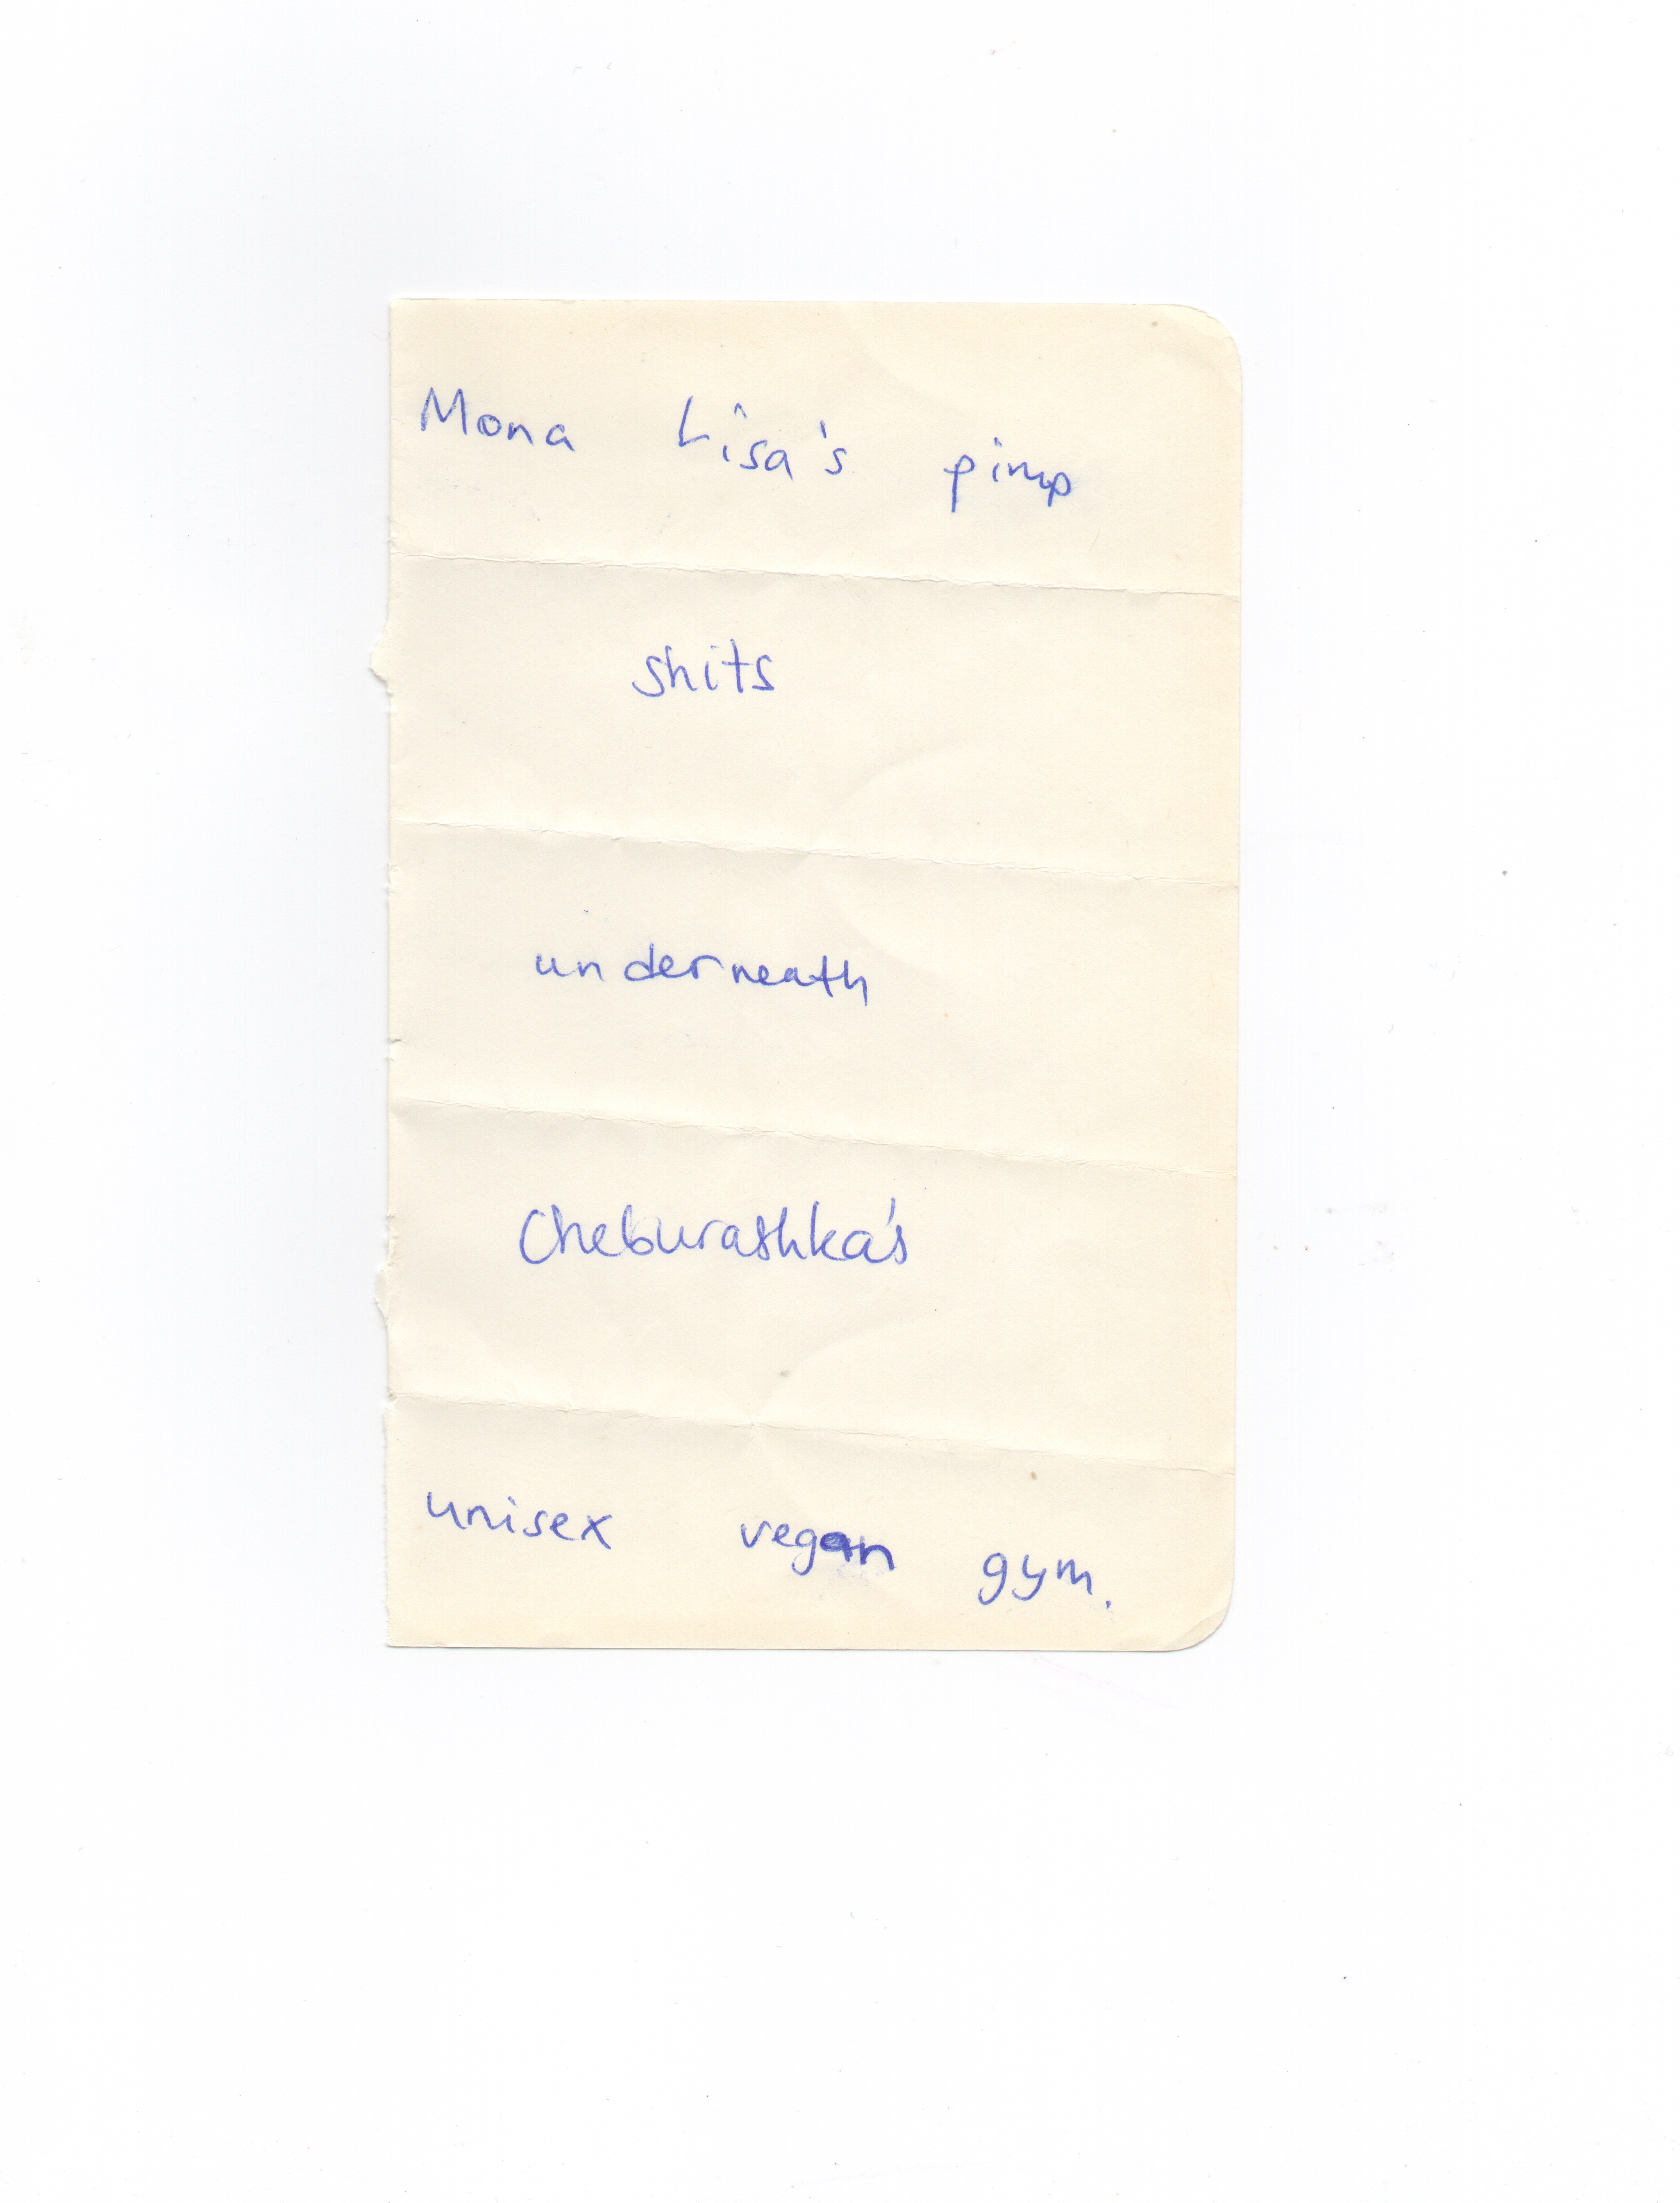 Mona Lisa's pimp
shits
underneath
Cheburashka's
unisex vegan gym.